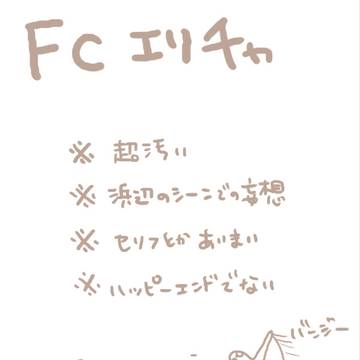 FC エリチャ
※ 超汚い
※ 浜辺のシーンでの妄想
※ セリフとかあいまい
※ ハッピーエンドでない
バンジー